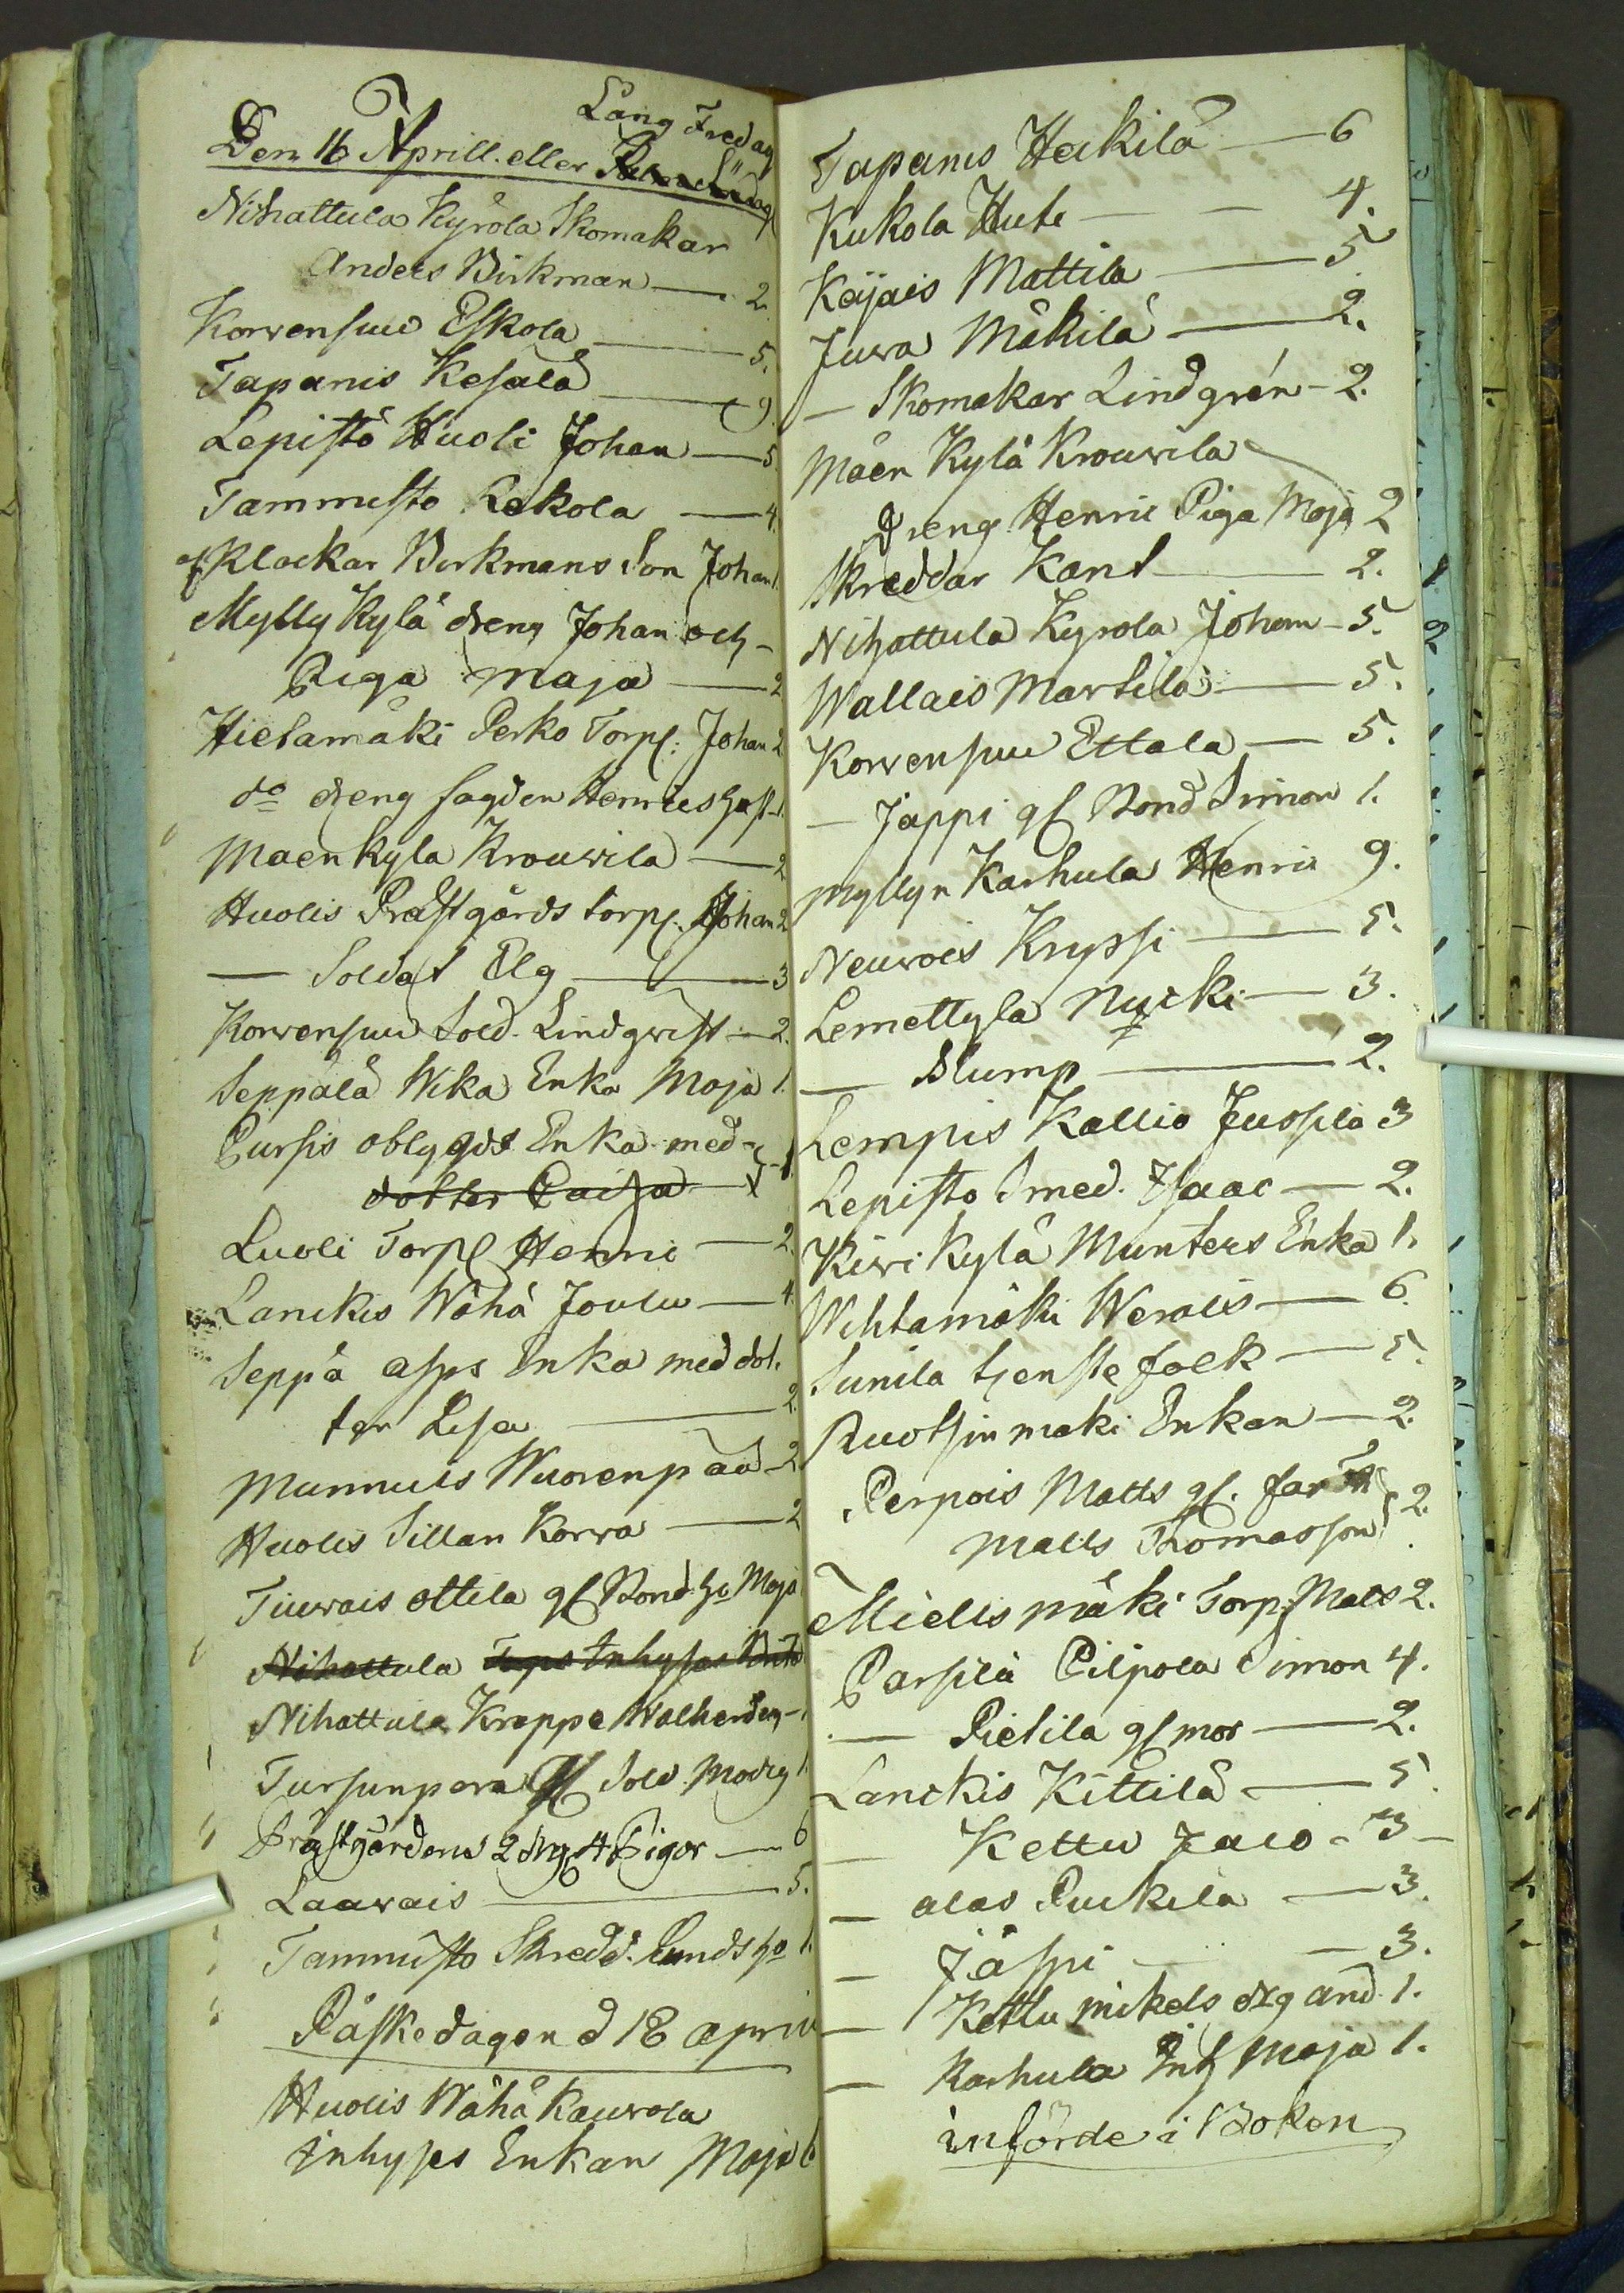 Lång Fredag
Den 16 Aprill. eller Palm Söndag
Nihattula Kyröla Skomakar
Anders Birkman — 2.
Korvensuu Eskola — 5.
Tapanis Kesälä — 9.
Lepistö Huoli Johan — 5.
Tammisto Kekola — 4.
Klockar Birkmans Son Johan 1.
Mylly Kylä dreng Johan och
Piga Maja — 2
Hietamäki Perko Torp: Johan 2
do dreng Henrics
Maenkyla Krouvila — 2
Huolis Prästgårds torp. Johan 2
— Soldat Elg — 3
Korvensuu Sold. Lindqvist — 2.
Seppälä Wika Enka Maja 1.
Pursis Enka med
dotter Caisa
Luoli Torp Henric — 2.
Lanckis Wähä Joulu — 4.
Seppä Enka med dot.
ter Lisa — 2.
Munnuis Wuorenpää — 2
Huolis Sillan Korva — 2
Tiuvais Ottila gl Bond Maja
Nihattula Inhyses
Nihattula Krappe
Tursunpera gl Sold. Modig 1.
Prästgårdens 2 drg 4 Pigor — 6
Laavais — 5.
Tammisto Skredd. Lunds 1.
Påskedagen d 18 April
Huolis Wähä Kauvola
Inhyses Enkan Maja
Tapanis Heikilä — 6
Kukola Huhe — 4.
Käjäis Mattila — 5
Juva Mäkilä — 2.
— Skomakar Lindgrén — 2.
Mäen Kylä Krouvila
Dreng Henric Piga Maja 2
Skreddar Kant — 2.
Nihattula Kyrola Johan — 5.
Wallais Martila — 5.
Korvensuu Ettala — 5.
— Jäppi gl Bond Simon 1.
Myllyn Karhula Henric 9.
Neuvois Kryssi — 5.
Lemettyla Nucki — 3.
— Slump — 2.
Lempis Kallio Jussila 3
Lepisto Smed. Isaac — 2.
Kivi Kylä Munters Enka 1.
Wihtamäki Werais — 6.
Sunila tjenste folk — 5.
Ruotsinmäki Enkan — 2.
Perpois Matts gl. far
Matts Thomasson 2.
Miellismäki Torp: Matts 2.
Parsila Pilpola Simon 4.
— Pietila gl mor — 2.
Lanckis Kittilä — 5.
— Kettu Jaco — 3 —
— alas Puckila — 3.
— Jäspi — 3.
— Kettu Mikels drg And. 1.
— Karhula Inh Maja 1.
införde i Boken